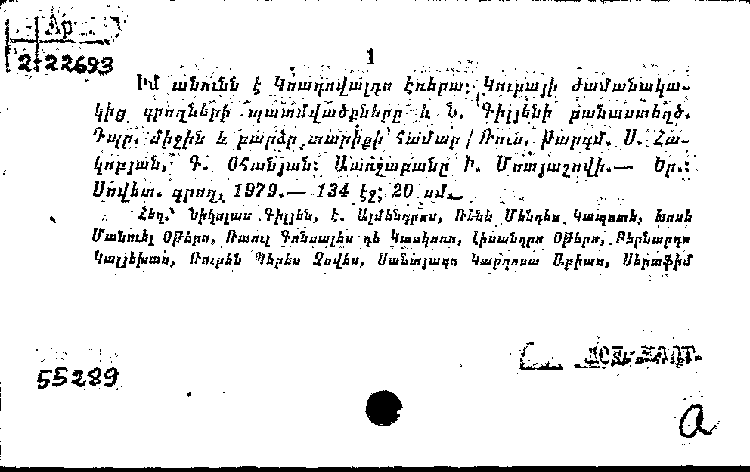 Ар
2-22693
1
Իմ անունն է Կուադովալդո Էռերա: Կուբայի ժամանակա-
կից գրողների պատմվածքները և Ն. Գիլյենի բանաստեղծ.
Դպր. միջին և բարձր տարիքի համար / Ռուս. թարգմ. Ս. Հա-
կոբյան, Գ. Օհանյան: Առաջաբանը Ի. Մոտյաշովի.— Եր.:
Սովետ. գրող, 1979.— 134 էջ; 20 սմ.—
Հեղ.՝ Նիկոլաս Գիլյեն, Է. Ալմենդրոս, Ռենե Մենդես Կապոտե, Խոսե
Մանուել Օթերո, Ռաուլ Գոնսալես դե Կասկոռո, Լիսանդրո Օթերո, Բերնարդո
Կալյեխաս, Ռուբեն Պերես Չովես, Սանտյագո Կարդոսա Արիաս, Սերաֆիմ
55289
a